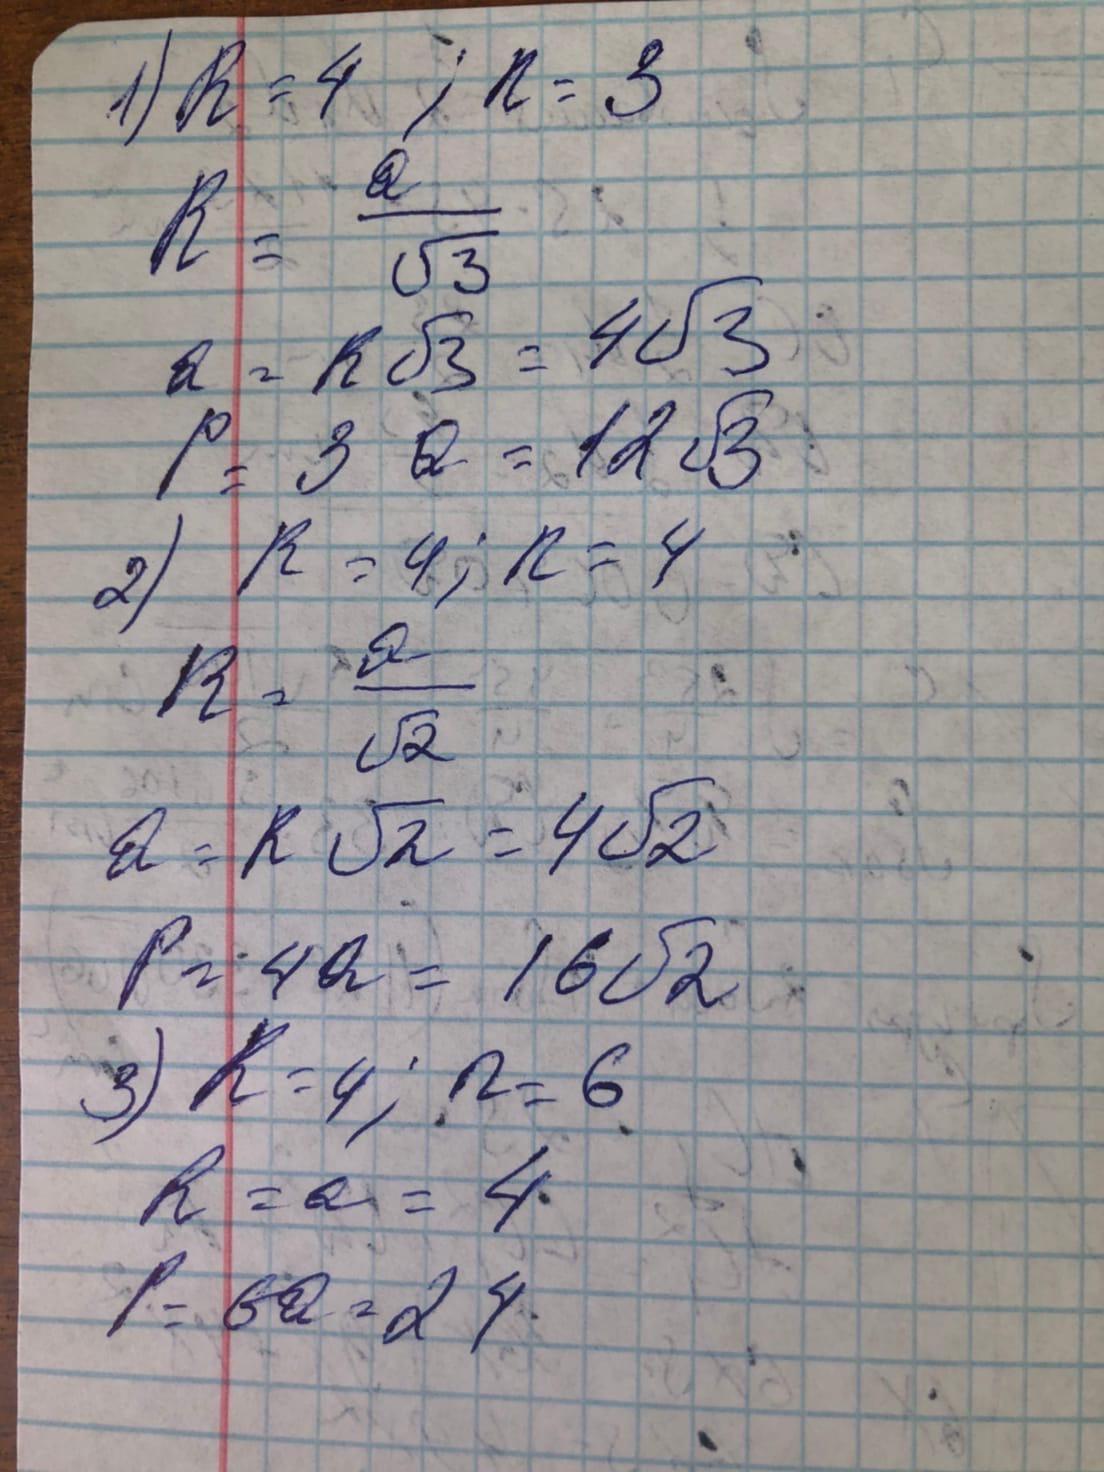 1) R = 4 ; n = 3
R = a/√3
a = R√3 = 4√3
P = 3a = 12√3
2) R = 4; n = 4
R = a/√2
a = R√2 = 4√2
P = 4a = 16√2
3) R = 4; n = 6
R = a = 4
P = 6a = 24